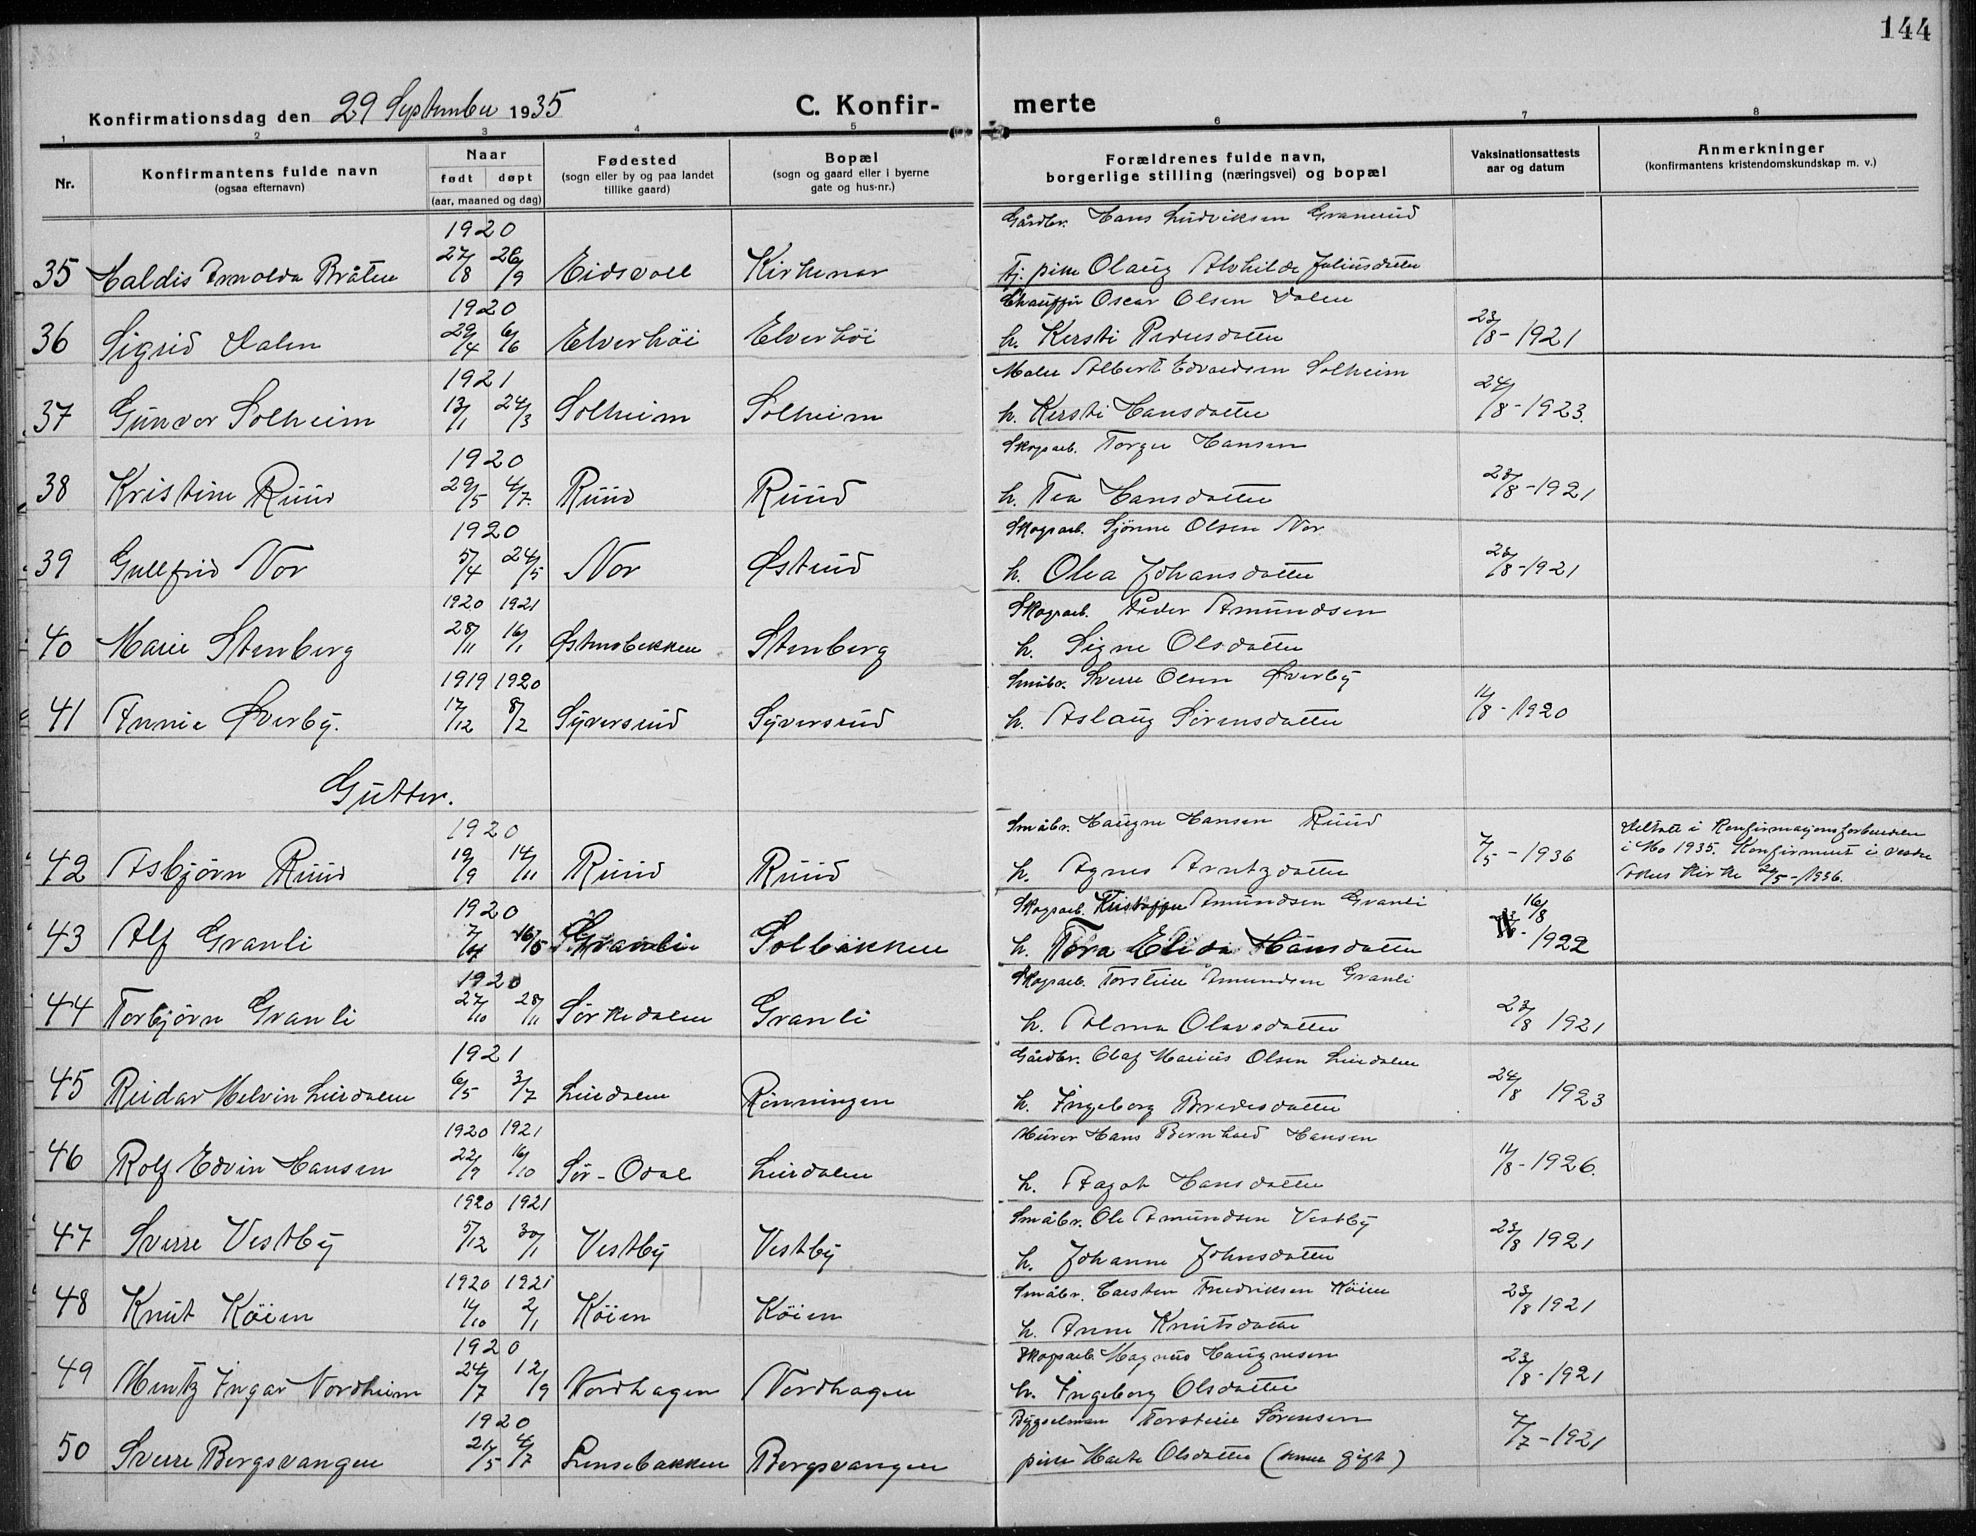 144
Konfirmationsdag den 29 September 1935 C. Konfir- merte
1 2 3 4 5 6 7 8
Nr. Konfirmantens fulde navn (ogsaa efternavn) Naar født døpt (aar, maaned og dag) Fødested (sogn eller by og paa landet tillike gaard) Bopæl (sogn og gaard eller i byerne gate og hus-nr.) Forældrenes fulde navn, borgerlige stilling (næringsvei) og bopæl Vaksinationsattests aar og datum Anmerkninger (konfirmantens kristendomskundskap m. v.)
1920 Gårdbr. Hans Ludviksen Granerud
35 Haldis Arnolda Bråten 27/8 26/9 Eidsvoll Kirkenær tj. pike Olaug Alvhilde Juliusdatter
1920 Chauffør Oscar Olsen Dalen
36 Sigrid Dalen 29/4 6/6 Elverhöi Elverhöi h. Kersti Pedersdatter 23/8-1921
1921 Maler Albert Edvardsen Solheim
37 Gunvor Solheim 13/1 24/3 Solheim Solheim h. Kersti Hansdatter 24/8-1923.
1920 Skogsarb. Torger Hansen
38 Kristine Ruud 29/5 4/7. Ruud Ruud h. Tea Hansdatter 23/8-1921
1920 Skogsarb. Sjønne Olsen Nor
39 Gullfrid Nor 5/4 24/5 Nor Østrud h. Olea Johansdatter 23/8-1921
1920 1921 Skogsarb. Peder Amundsen
40 Marie Stenberg 28/11 16/1 Østensbekken Stenberg h. Signe Olsdatter
1919 1920 Småbr. Sverre Olsen Øverby
41 Annie Øverby. 17/12 8/2 Syversrud Syversrud h. Aslaug Sørensdatter 11/8-1920
Gutter.
1920 Småbr. Haugne Hansen Ruud Deltatt i Konfirmasjonsforberedelsen
42 Asbjørn Ruud 19/9 14/11 Ruud Ruud h. Agnes Arntzdatter 7/5-1936 i Mo 1935. Konfirmert i Vestre
Aker Kirke 24/5-1936.
1920 Skogsarb. Kristoffer Amundsen Granli 16/8
43 Alf Granli 16/5 Granli Solbakken h. Tora Elida Hansdatter 1922
1920 Skogsarb. Torstein Amundsen Granli
44 Torbjørn Granli 27/10 28/11 Sørkedalen Granli h. Alma Olavsdatter 23/8 1921
1921 Gårdbr. Olaf Marius Olsen Lierdalen
45 Reidar Melvin Lierdalen 6/5 3/7 Lierdalen Rønningen h. Ingeborg Bredesdatter 24/8 1923
1920 1921 Murer Hans Bernhard Hansen
46 Rolf Edvin Hansen 22/9 16/10 Sør-Odal Lierdalen h. Aagot Hansdatter 11/8-1926.
1920 1921 Småbr. Ole Amundsen Vestby
47 Sverre Vestby 5/12 30/1 Vestby Vestby h. Johanne Johnsdatter 23/8 1921
1920 1921 Småbr. Carsten Fredriksen Köien
48 Knut Köien 11/10 2/1 Köien Köien h. Anne Knutsdatter 23/8 1921
1920 Skogsarb. Magnus Haugnesen
49 Mentz Ingar Nordheim 24/7 12/9 Nordhagen Nordhagen h. Ingeborg Olsdatter 23/8-1921
1920 Bygselman Torstein Sørensen
50 Sverre Bergsvangen 21/5 4/7 Lensebakken Bergsvangen pike Marte Olsdatter (senere gift) 7/7-1921